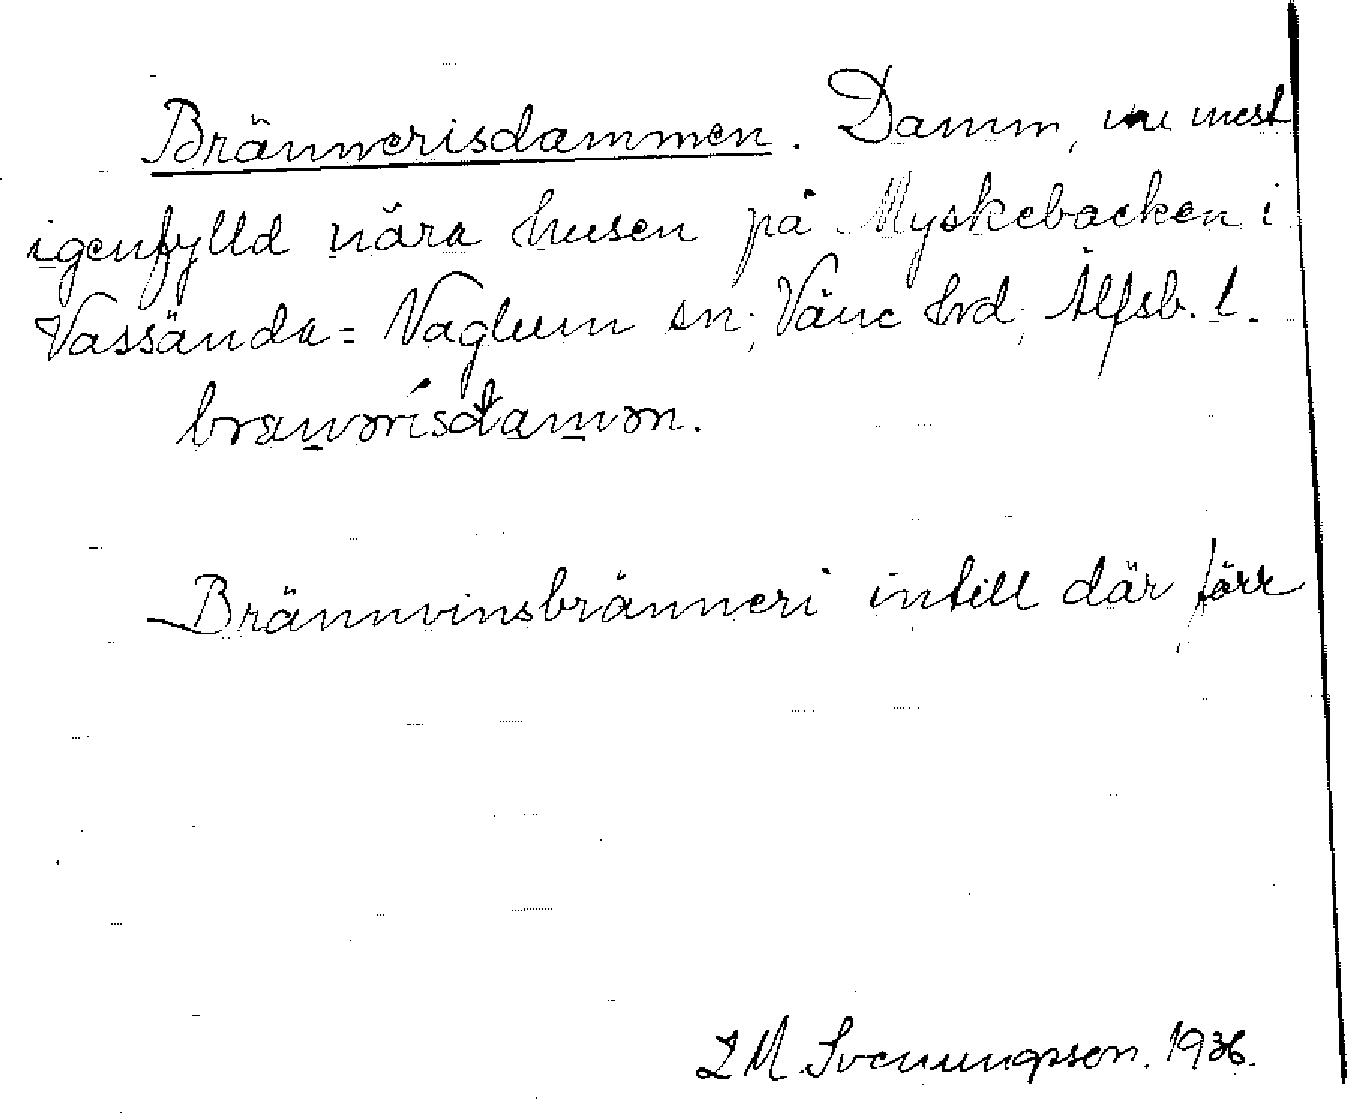 Brännerisdammen. Damm, nu mest
igenfylld nära husen på Myskebacken i
Vassända-Naglum sn; Väne hrd; Älfsb. l.
Brännvinsbränneri intill där förr
Svenungsson. 1936.